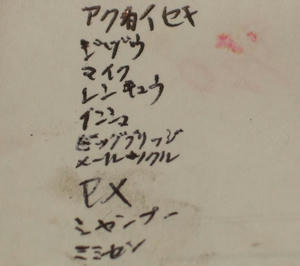 アクタイセキ
ジゾウ
マイク
レンキュウ
インシュ
ビッグブリッジ
メールサクル
EX
シャンプー
ミミセン